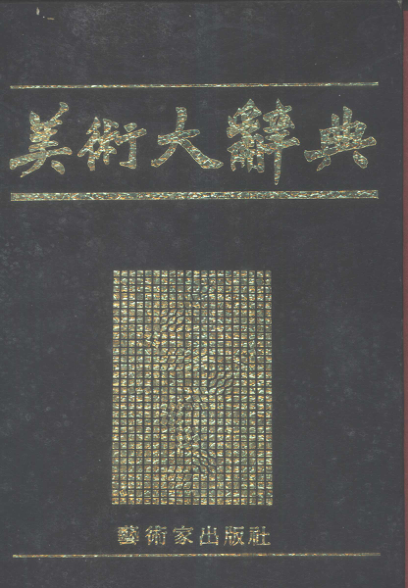 美術大辭典
藝術家出版社